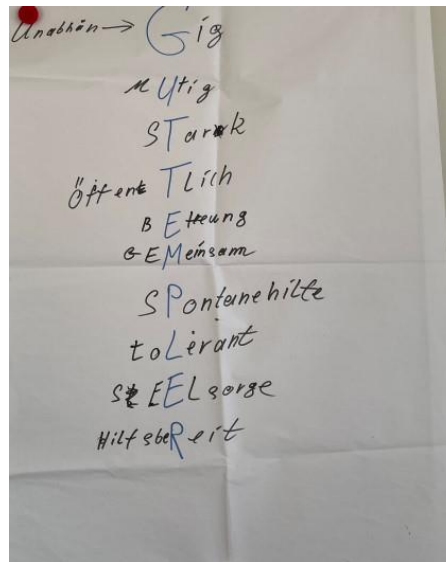 Unabhän → Gig
MUtig
STark
ÖffentTlich
BEtreung
GEMeinsam
SPontanehilfe
toLerant
SEELsorge
HilfsbeReit